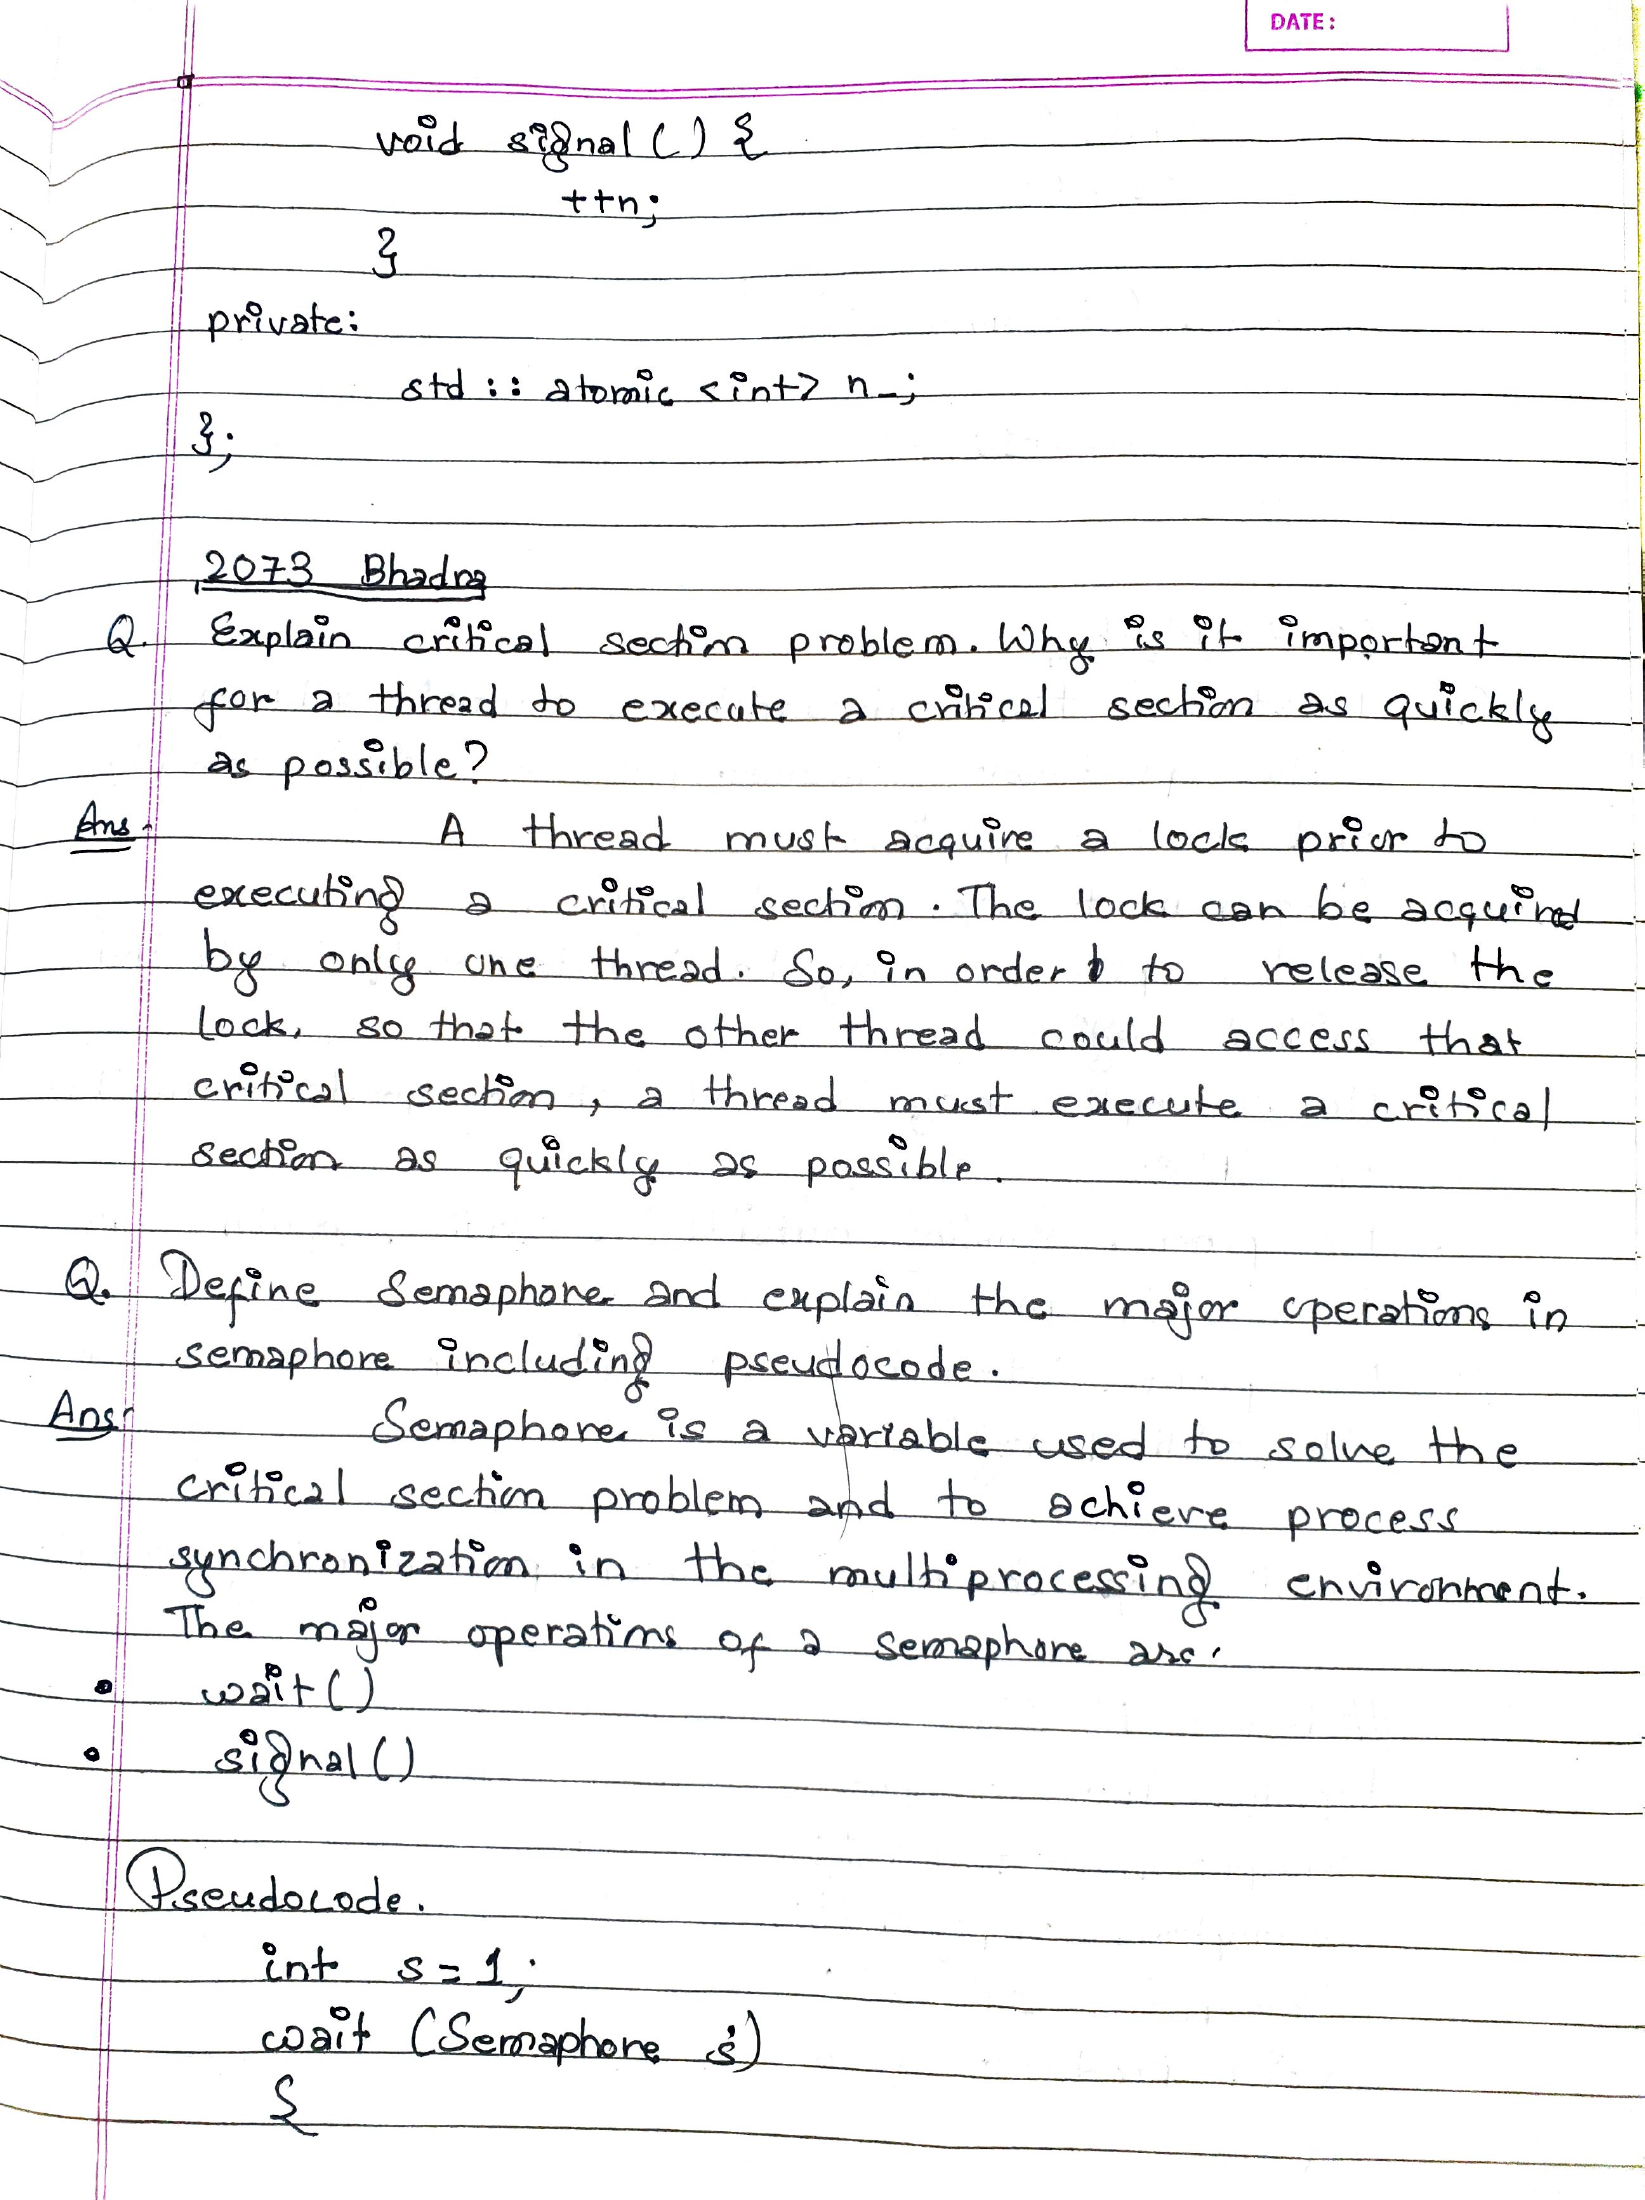 DATE:
void signal() {
++n;
}
private:
std :: atomic <int> n_;
};
2073 Bhadra
Q. Explain critical section problem. Why is it important
for a thread to execute a critical section as quickly
as possible?
Ans A thread must acquire a lock prior to
executing a critical section. The lock can be acquired
by only one thread. So, in order to release the
lock, so that the other thread could access that
critical section, a thread must execute a critical
section as quickly as possible.
Q. Define Semaphore and explain the major operations in
semaphore including pseudocode.
Ans: Semaphore is a variable used to solve the
critical section problem and to achieve process
synchronization in the multiprocessing environment.
The major operations of a semaphore are.
• wait()
• signal()
Pseudocode.
int s = 1;
wait (Semaphore s)
{